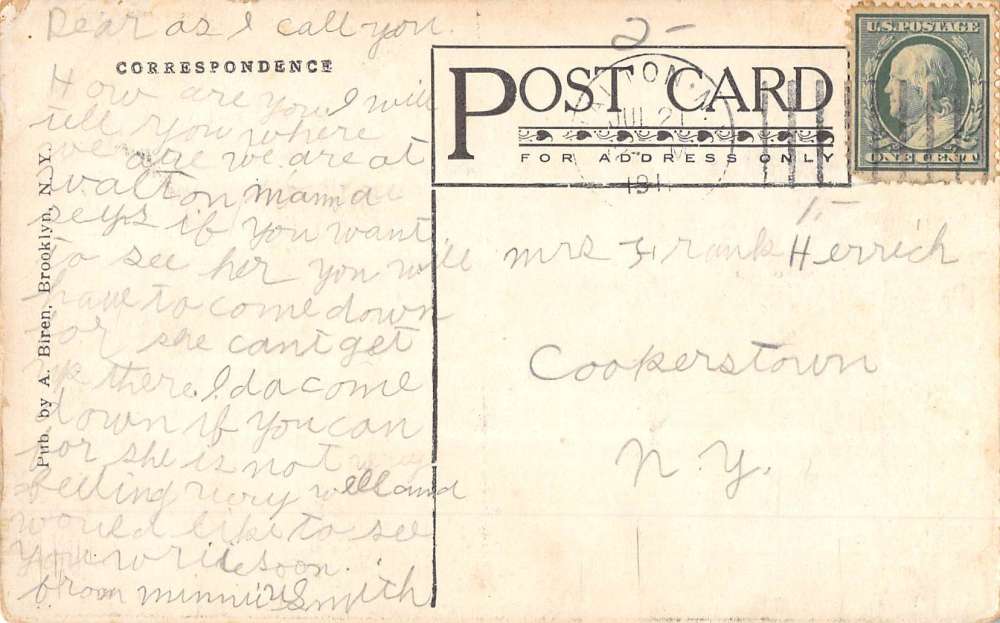 Dear as I call you.
CORRESPONDENCE
How are you I will
tell you where
we are we are at
walton mama
seys if you want
to see her you will
have to come down
for she cant get
up there. Ida come
down if you can
for she is not
feeling very well and
would like to see
you write soon.
from minnie Smith
Pub. by A. Biren, Brooklyn, N.Y.
2-
POST CARD
FOR ADDRESS ONLY
JUL 21
191
U.S. POSTAGE
ONE CENT
mrs Frank Herrich
Cookerstown
N.Y.